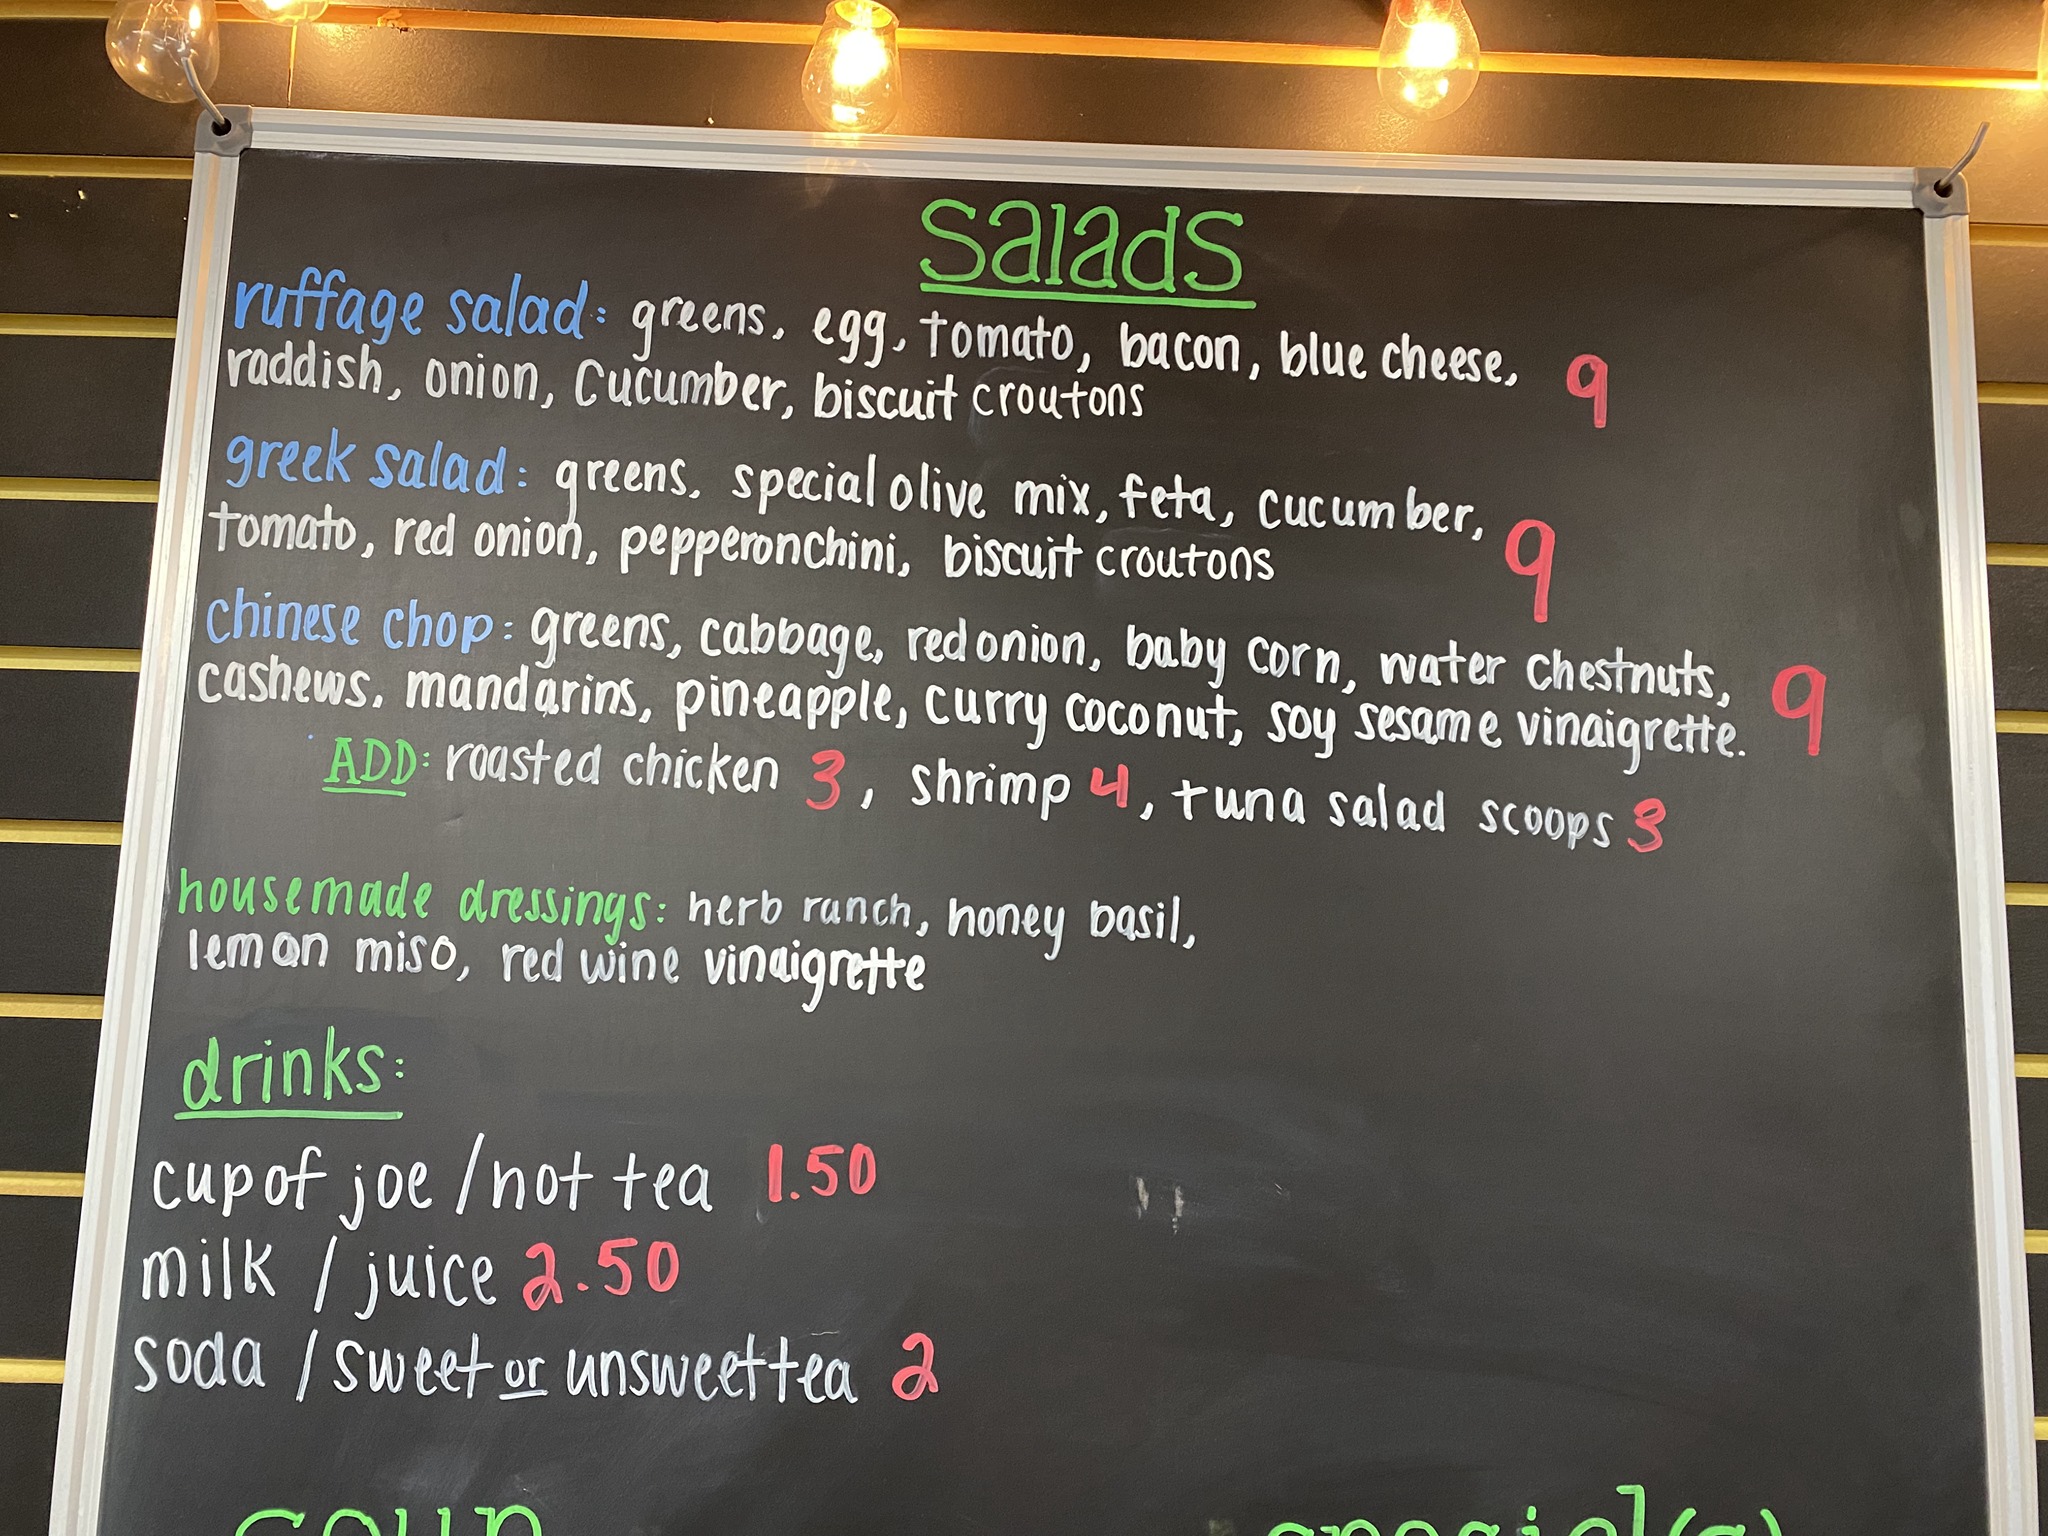 salads
ruffage salad: greens, egg, tomato, bacon, blue cheese, 9
raddish, onion, cucumber, biscuit croutons
greek salad: greens, special olive mix, feta, cucumber, 9
tomato, red onion, pepperonchini, biscuit croutons
chinese chop: greens, cabbage, red onion, baby corn, water chestnuts, 9
cashews, mandarins, pineapple, curry coconut, soy sesame vinaigrette.
ADD: roasted chicken 3, shrimp 4, tuna salad scoops 3
housemade dressings: herb ranch, honey basil,
lemon miso, red wine vinaigrette
drinks:
cup of joe / hot tea 1.50
milk / juice 2.50
soda / sweet or unsweet tea 2
soup special(s)